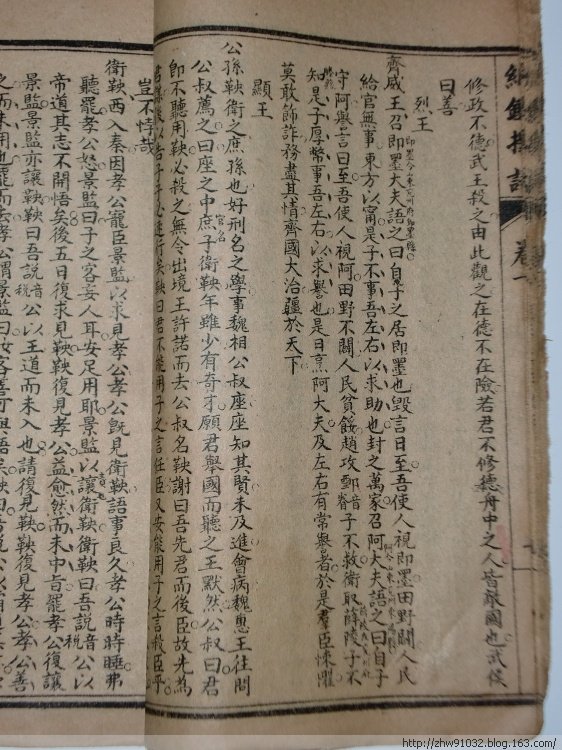 綱鑑擇語 卷一
修政不德武王殺之由此觀之在德不在險若君不修德舟中之人皆敵國也武侯
曰善
烈王
齊威王召即墨大夫語之曰自子之居即墨也毀言日至吾使人視即墨田野闢人民
給官無事東方以甯是子不事吾左右以求助也封之萬家召阿大夫語之曰自子
守阿譽言日至吾使人視阿田野不闢人民貧餒趙攻鄄子不救衛取薛陵子不
知是子厚幣事吾左右以求譽也是日烹阿大夫及左右有常譽者於是羣臣悚懼
莫敢飾詐務盡其情齊國大治疆於天下
顯王
公孫鞅衛之庶孫也好刑名之學事魏相公叔座座知其賢未及進會病魏惠王往問
公叔薦之曰座之中庶子衛鞅年雖少有奇才願君舉國而聽之王默然公叔曰君
即不聽用鞅必殺之無令出境王許諾而去公叔名鞅謝曰吾先君而後臣故先為
君謀後以告子子必速行矣鞅曰君不能用子之言任臣又安能用子之言殺臣乎
豈不悖哉
衛鞅西入秦因孝公寵臣景監以求見孝公孝公既見衛鞅語事良久孝公時時睡弗
聽罷孝公怒景監曰子之客妄人耳安足用耶景監以讓衛鞅衛鞅曰吾說音稅公以
帝道其志不開悟矣後五日復求見鞅鞅復見孝公益愈然而未中旨罷孝公復讓
景監景監亦讓鞅鞅曰吾說音稅公以王道而未入也請復見鞅鞅復見孝公孝公善
之而未用也罷而去孝公謂景監曰汝客善可與語矣鞅曰吾說公以
http://zhw91032.blog.163.com/